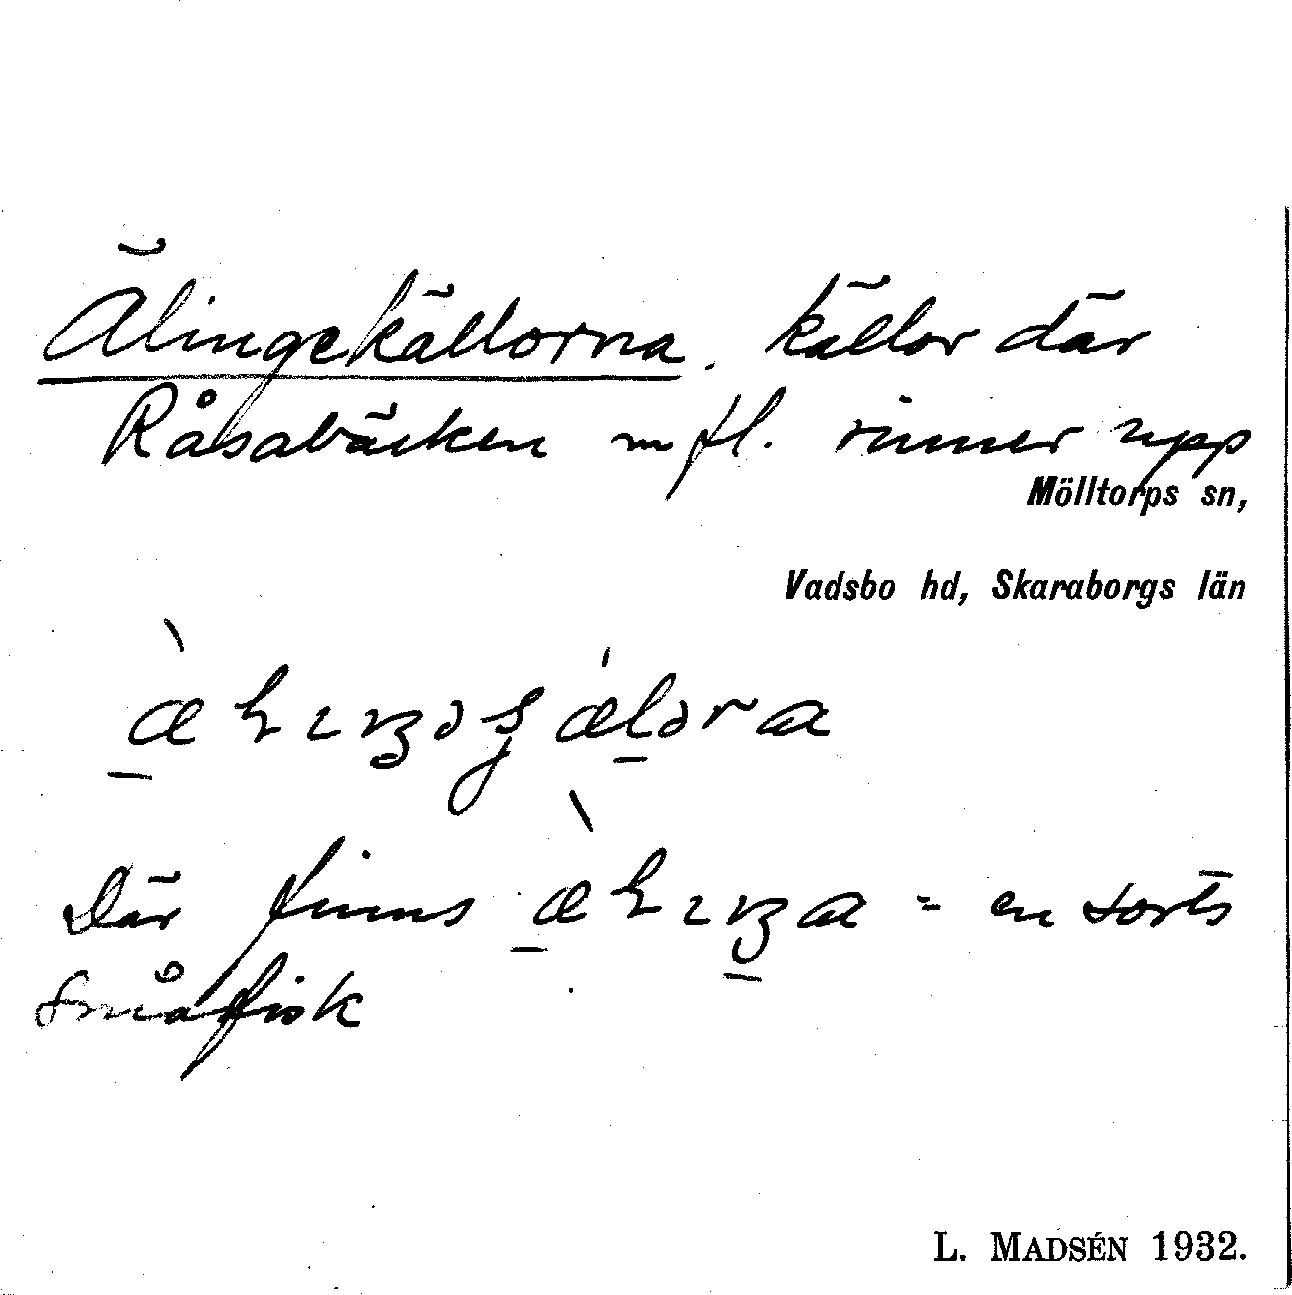 Älingekällorna. källor där
Råsabäcken m fl. rinner upp
Mölltorps sn,
Vadsbo hd, Skaraborgs län
Där finns = en sorts
småfisk
L. MADSÉN 1932.